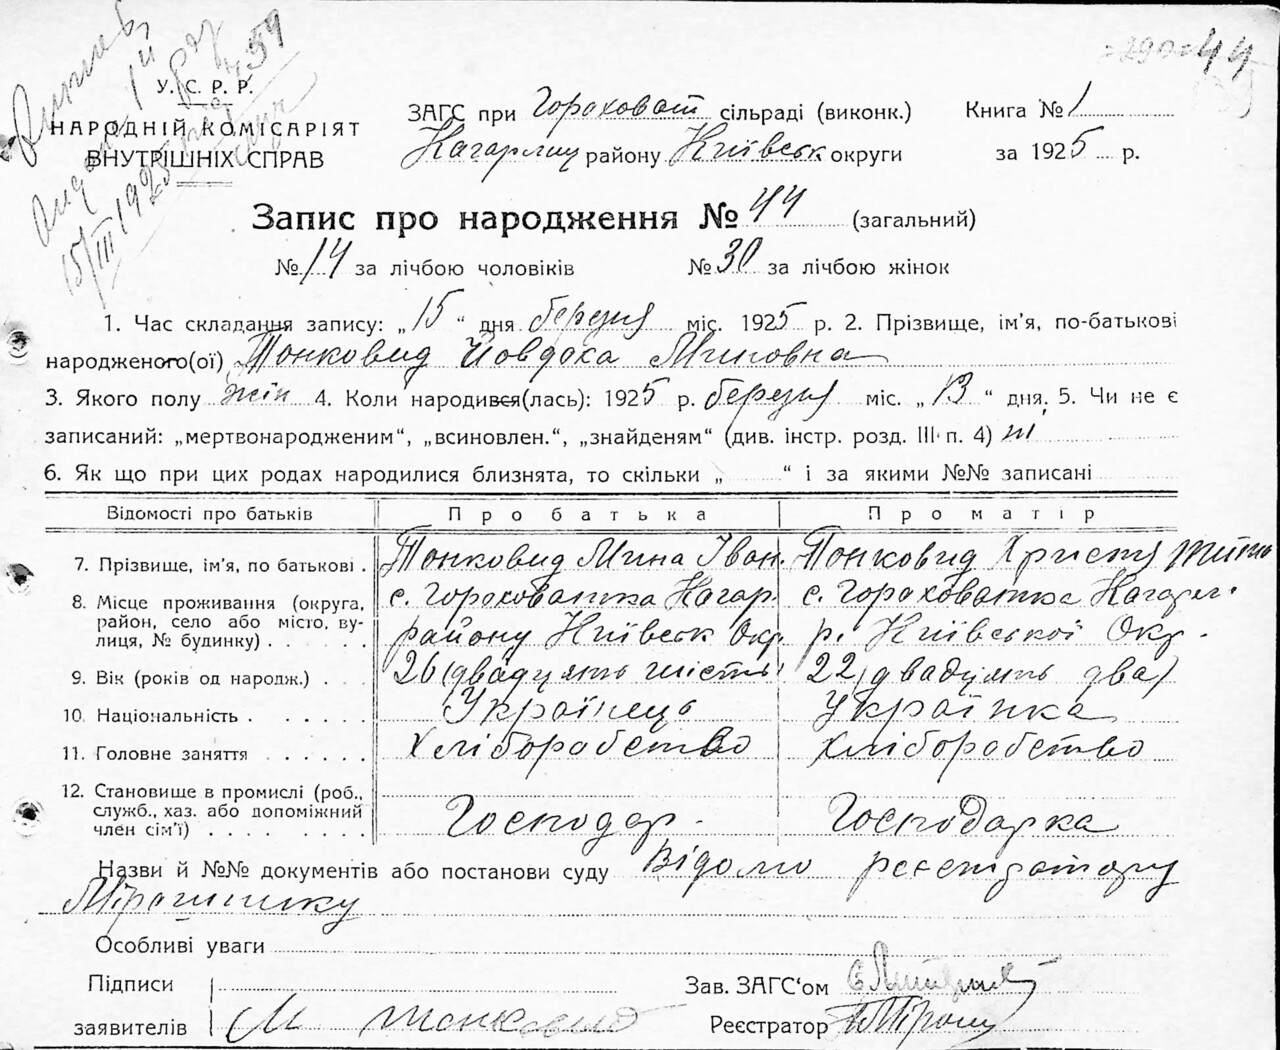 =290=44
У. С. Р. Р.
НАРОДНІЙ КОМІСАРІЯТ
ВНУТРІШНІХ СПРАВ
15/III 1925
ЗАГС при Гороховат сільраді (виконк.) Книга № 1
Кагарлиц району Київськ округи за 1925 р.
Запис про народження № 44 (загальний)
№ 14 за лічбою чоловіків № 30 за лічбою жінок
1. Час складання запису: „15“ дня березня міс. 1925 р. 2. Прізвище, ім'я, по-батькові
народженого(ої) Тонковид Йовдоха Миновна
3. Якого полу жін 4. Коли народився(лась): 1925 р. березня міс. „13“ дня. 5. Чи не є
записаний: „мертвонародженим“, „всиновлен.“, „знайденям“ (див. інстр. розд. III п. 4)
6. Як що при цих родах народилися близнята, то скільки „ “ і за якими №№ записані
Відомості про батьків Про батька Про матір
7. Прізвище, ім'я, по батькові . Тонковид Мина Іван. Тонковид Христя
8. Місце проживання (округа, район, село або місто, вулиця, № будинку) . . . . . . с. Гороховатка Кагар. району Київськ Окр. с. Гороховатка Кагарл. р. Київської Окр.
9. Вік (років од народж.) . . . 26 (двадцять шість) 22 (двадцять два)
10. Національність . . . . . . Українець Українка
11. Головне заняття . . . . . . Хліборобство Хліборобство
12. Становище в промислі (роб., служб., хаз. або допоміжний член сім'ї) . . . . . . . . Господар. Господарка
Назви й №№ документів або постанови суду Відомо реєстратору
Особливі уваги
Підписи Зав. ЗАГС'ом
заявителів М Тонковид Реєстратор